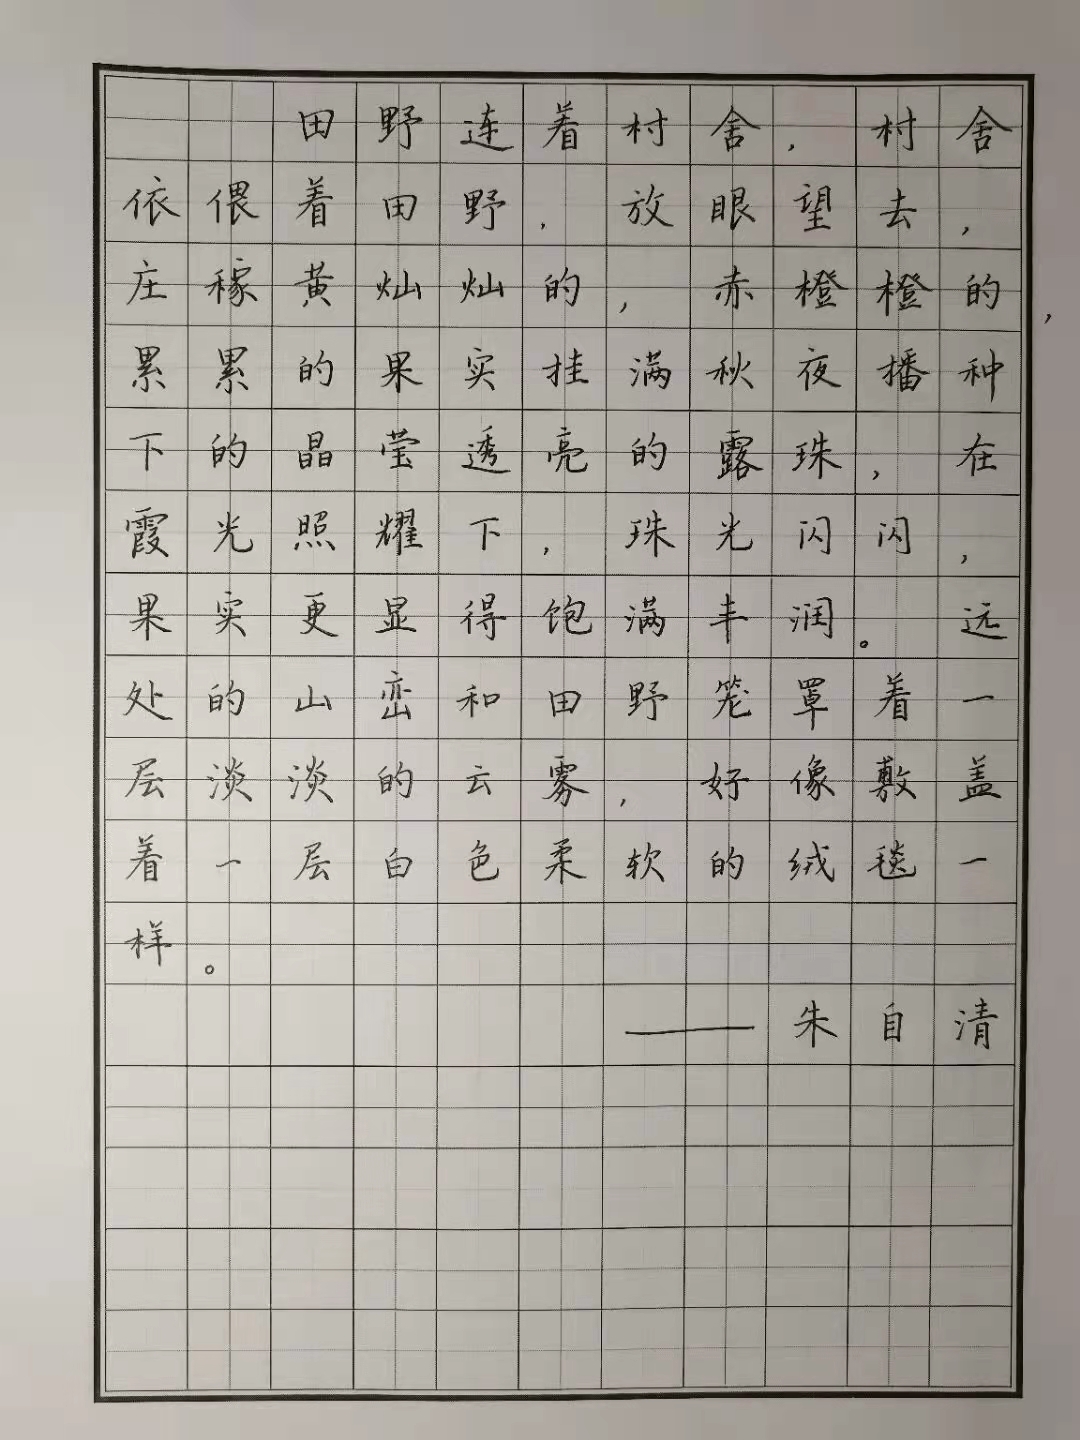 田野连着村舍，村舍
依偎着田野，放眼望去，
庄稼黄灿灿的，赤橙橙的，
累累的果实挂满秋夜播种
下的晶莹透亮的露珠，在
霞光照耀下，珠光闪闪，
果实更显得饱满丰润。远
处的山峦和田野笼罩着一
层淡淡的云雾，好像敷盖
着一层白色柔软的绒毯一
样。
——朱自清